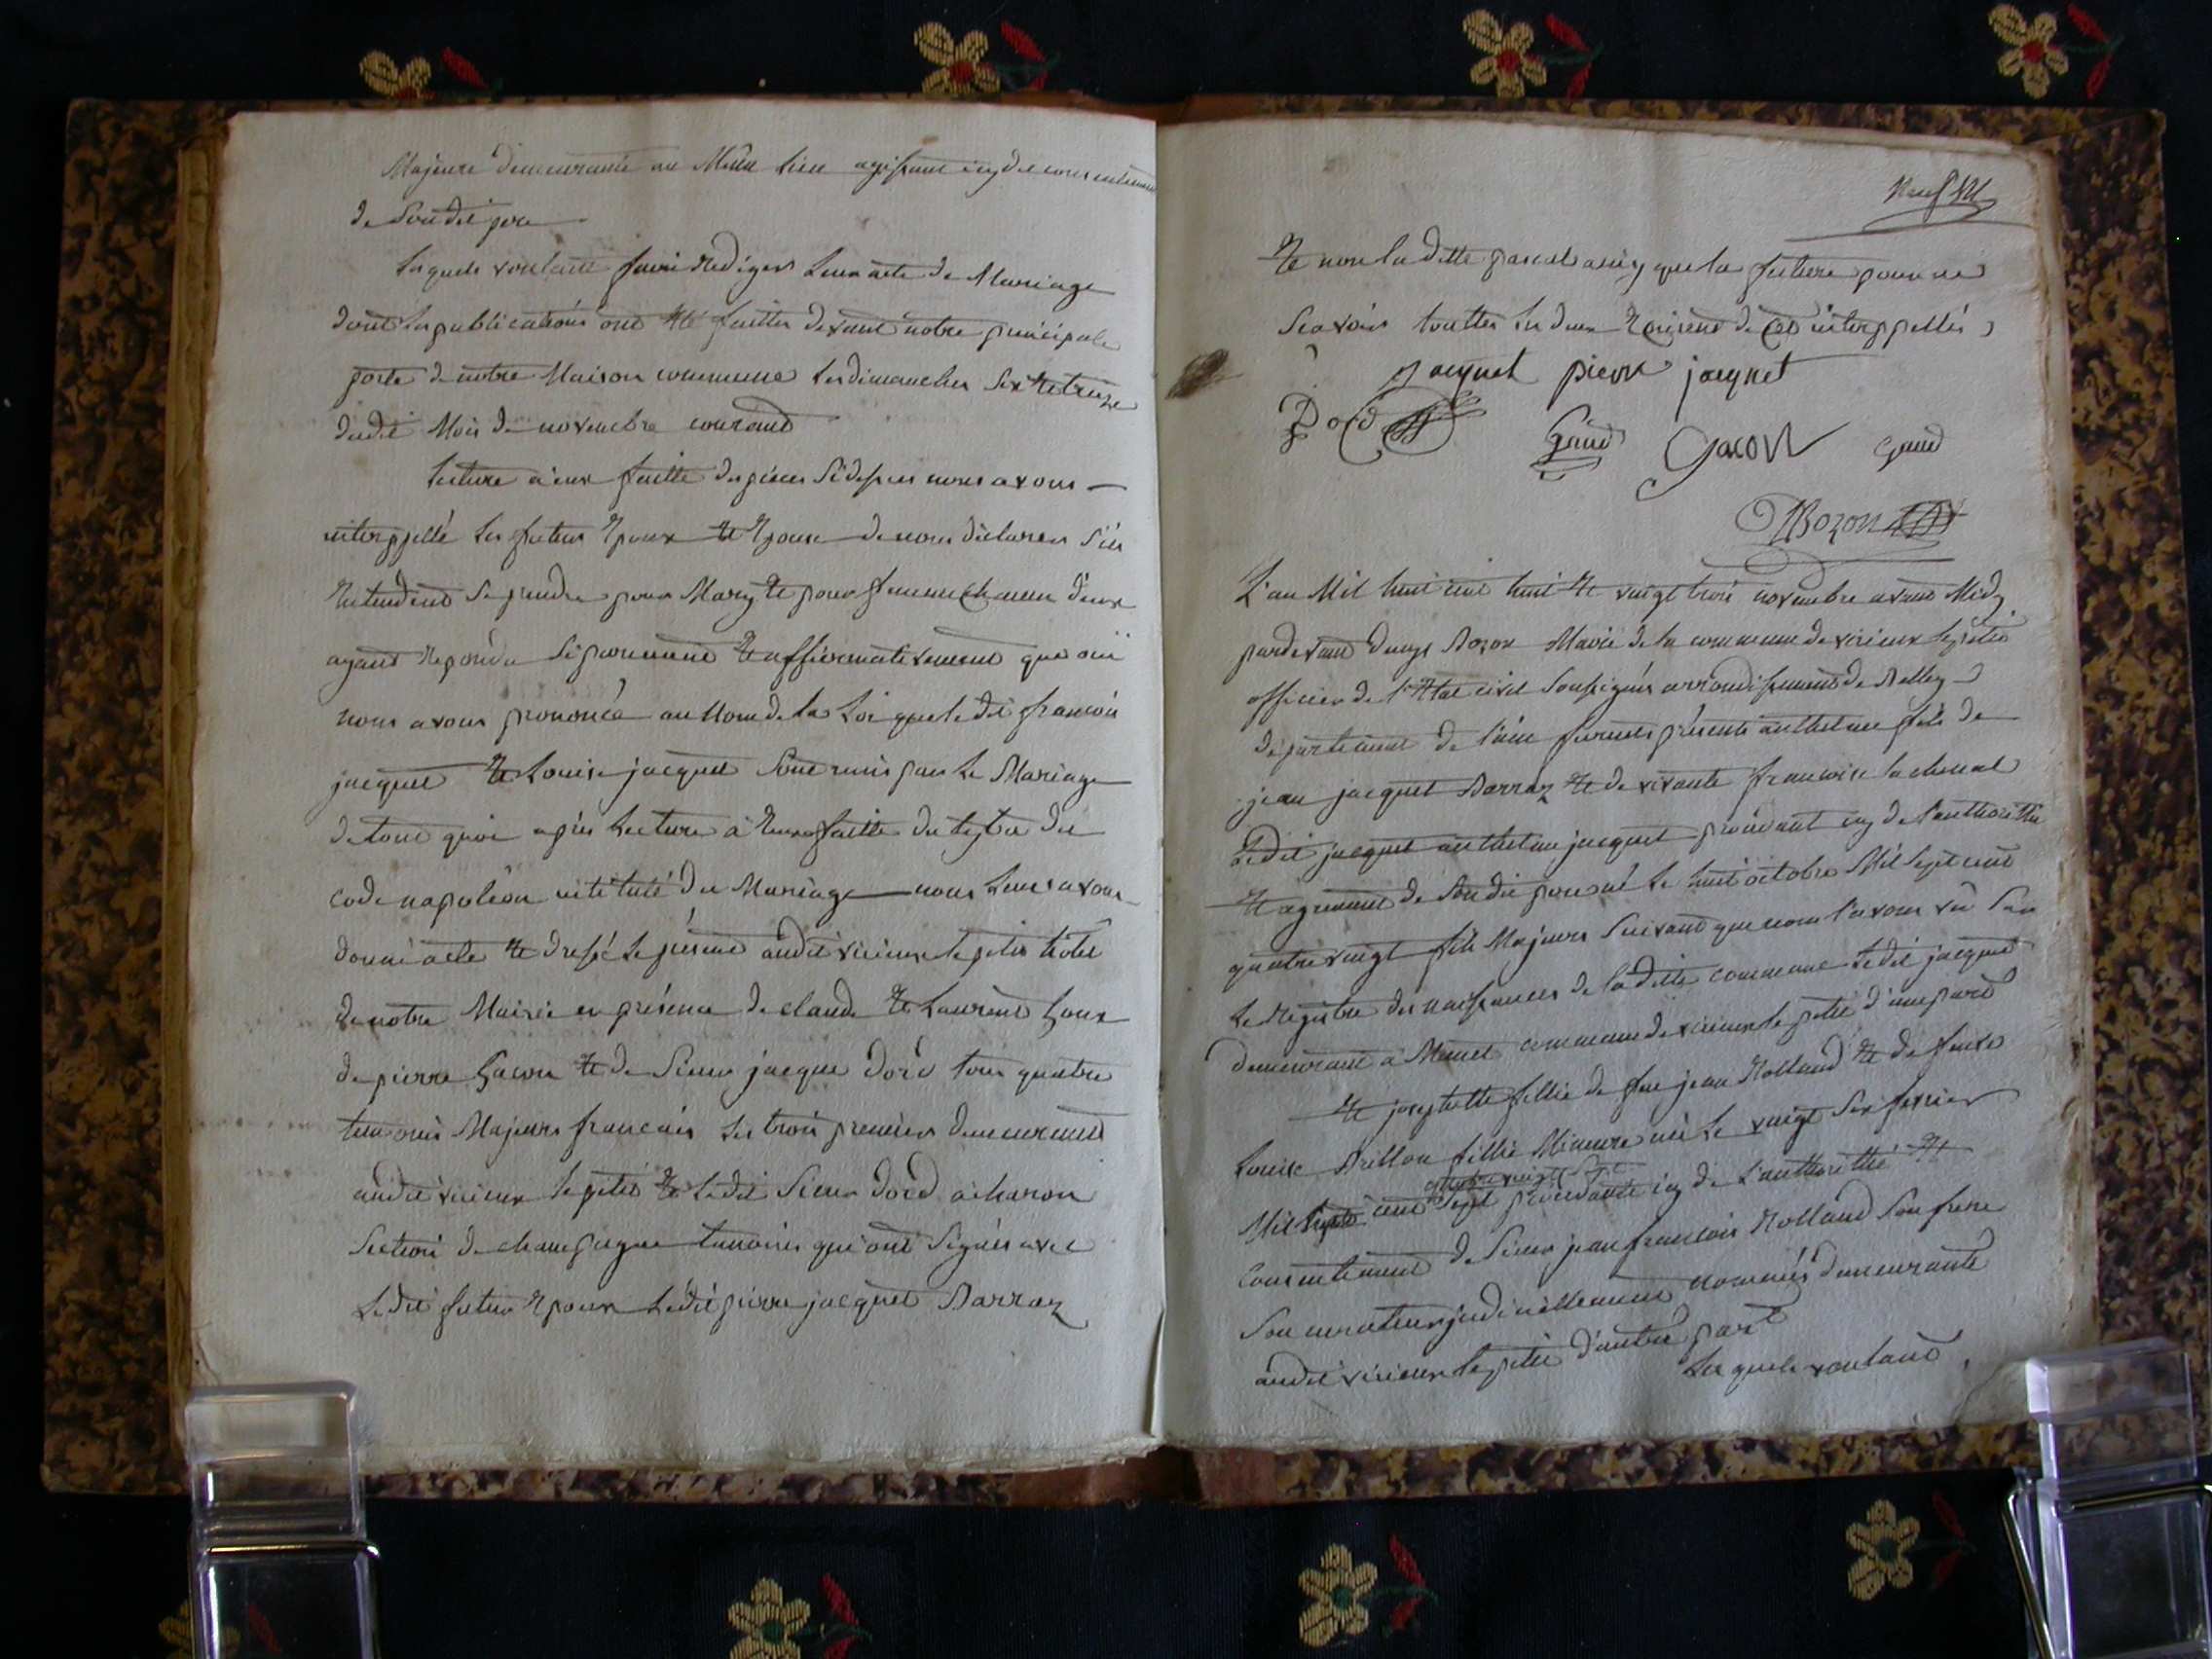 Majeure demeurante au Même lieu agissant icy du consentement
de Son dit pere
Lesquels voulant faire Rediger Leur acte de Mariage
dont les publications ont Eté faittes devant notre principale
porte de notre Maison commune Les dimanches Six Et treize
dudit Mois de novembre courant
Lecture à eux faitte des pieces Sidessus nous avons
interppellé Les futurs Epoux Et Epouse de nous déclarer S'ils
Entendent Se prendre pour Mary Et pour femme Chacun d'eux
ayant Repondu Séparement Et affirmativement que oui
nous avons prononcé au Nom de la Loi que le dit françois
jacquet Et Louise jacquet Sont unis par Le Mariage
de tout quoi après Lecture à Eux faitte du tytre du
code napoléon intitulé du Mariage nous Leur avons
donné acte Et dressé Le présent audit virieux le petit hotel
de notre Mairie en présence de claude Et Laurent Goux
de pierre Gacon Et de Sieur jacque Dord tous quatre
temoins Majeurs français Les trois premiers demeurant
audit virieux le petit Et Ledit Sieur Dord à charon
Section de champagne temoins qui ont Signés avec
Ledit futur Epoux Ledit pierre jacquet Barraz
Neuf
Et non la ditte pascal ainsy que la future pour ne
Scavoir touttes Les deux Ecrire de Ce interppellés
jacquet pierre jacquet
Dord
Gaud Gacon Gaud
DBozon
L'an Mil huit cent huit Et vingt trois novembre avant Midy
pardevant Denys Bozon Maire de la commune de virieux le petit
officier de l'Etat civil Soussignés arrondissement de Belley
département de l'ain furent présents anthelme fils de
jean jacquet Barraz Et de vivante francoise lachenal
Ledit jacquet anthelme jacquet procédant icy de l'authorithé
Et agrement de Son dit pere né Le huit octobre Mil Sept cent
quatre vingt fils Majeurs Suivant que nous l'avons vû Sur
Le Registre des naissances de la ditte commune Ledit jacquet
demeurant à Munet commune de virieux le petit d'une part
Et josephte fillie de feu jean Rolland Et de feue
Louise Brillon fillie Mineure née Le vingt Six fevrier
quatre vingt
Mil Sept cent Sept procédante icy de L'authorithé Et
consentement de Sieur jean francois Rolland Son frere
Son curateur judiciellement nommés demeurante
audit virieux le petit d'autre part
Lesquels voulant